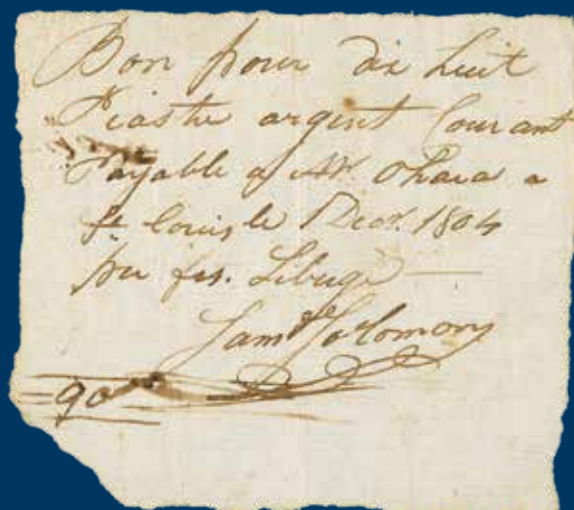 Bon pour dix huit
Piastre argent Courant
Payable a Mr. Ohara a
St. Louis le Decr. 1804
pr frs.
Saml Solomon
90